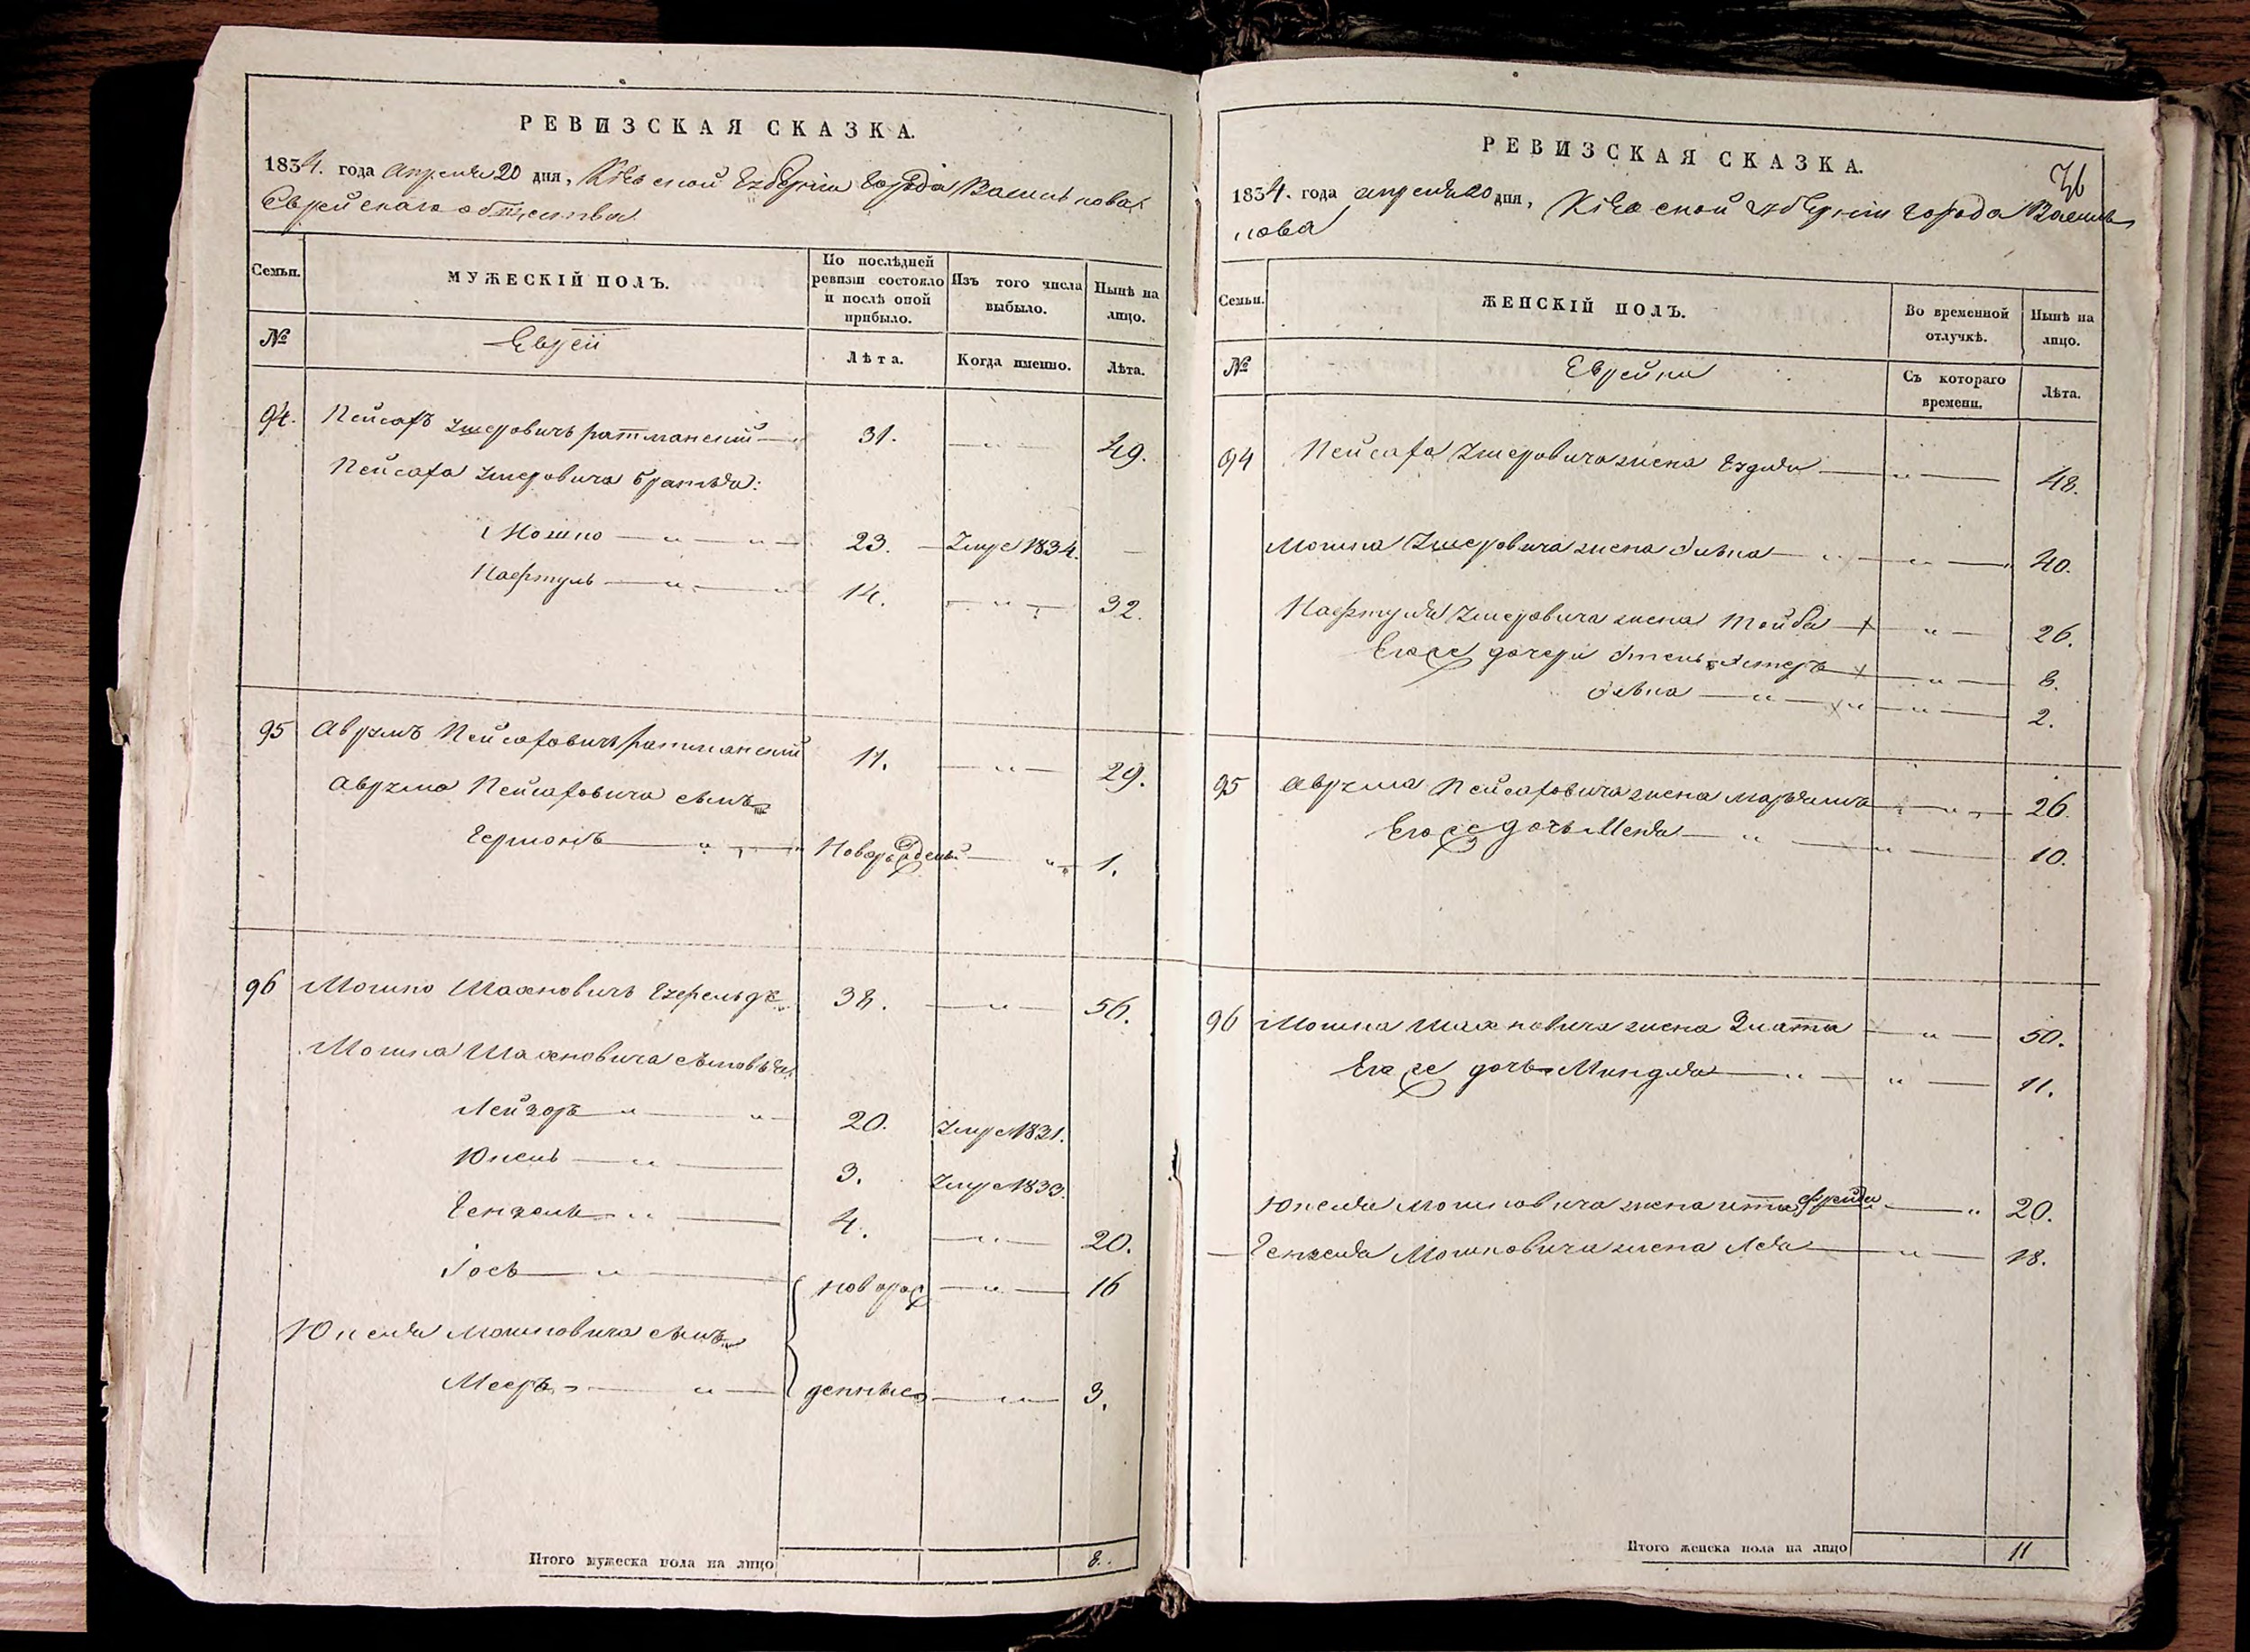 РЕВИЗСКАЯ СКАЗКА.
1834. года апреля 20 дня, Кіевской Губерніи города Василькова
Еврейскаго общества
Семьи.
МУЖЕСКІЙ ПОЛЪ.
По послѣдней ревизіи состояло и послѣ оной прибыло.
Изъ того числа выбыло.
Нынѣ на лицо.
№
Евреи
Лѣта.
Когда именно.
Лѣта.
94. Пейсахъ Умеровичъ ратманскій 31. — " — 49.
Пейсаха Умеровича братья:
Мошко — " — " — 23. — Умре 1834. —
Нафтуль — " — " 14. — " — 32.
95 Аврумъ Пейсаховичъ ратманскій 11. — " — 29.
Аврума Пейсаховича сынъ
Гершонъ — " — Новорожденый — " 1.
96 Мошко Шахновичъ 38. — " — 56.
Мошка Шахновича сыновья:
Лейзоръ — " — " — 20. Умре 1831.
Юкель — " — 3. Умре 1833.
Гензель — " — 4. — " — 20.
Іось — " — новорож — " — 16
Юкеля Мошковича сынъ
Мееръ — " — денные — " — 3.
Итого мужеска пола на лицо 8.
РЕВИЗСКАЯ СКАЗКА.
36
1834. года апреля 20 дня, Кіевской губерніи города Василь
кова
Семьи.
ЖЕНСКІЙ ПОЛЪ.
Во временной отлучкѣ.
Нынѣ на лицо.
№
Еврейки
Съ котораго времени.
Лѣта.
94 Пейсаха Умеровича жена Гудля — " — 48.
Мошка Умеровича жена — " — 40.
Нафтуля Умеровича жена Тойба — " — 26.
Егоже дочери Эстеръ — " — 8.
— " — " — 2.
95 Аврума Пейсаховича жена Марьямъ — " — 26.
Егоже дочь Меня — " — " — 10.
96 Мошка Шахновича жена Злата — " — 50.
Егоже дочь Миндля — " — " — 11.
Юкеля Мошковича жена Ита Фрейда — " 20.
Гензеля Мошковича жена Лея — " — 18.
Итого женска пола на лицо 11